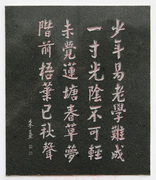 少年易老學難成
一寸光陰不可輕
未覺蓮塘春草夢
階前梧葉已秋聲